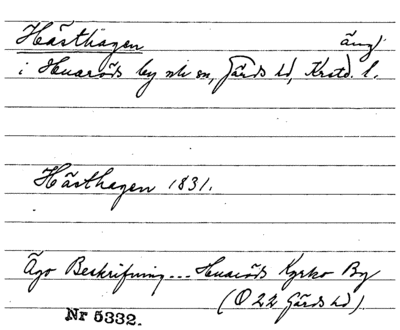 Hästhagen äng
i Huaröds by ock sn, Gärds hd, Krstd. l.
Hästhagen 1831.
Ägo Beskrifning... Huaröds Kyrko By
(O 22 Gärds hd).
Nr 5332.